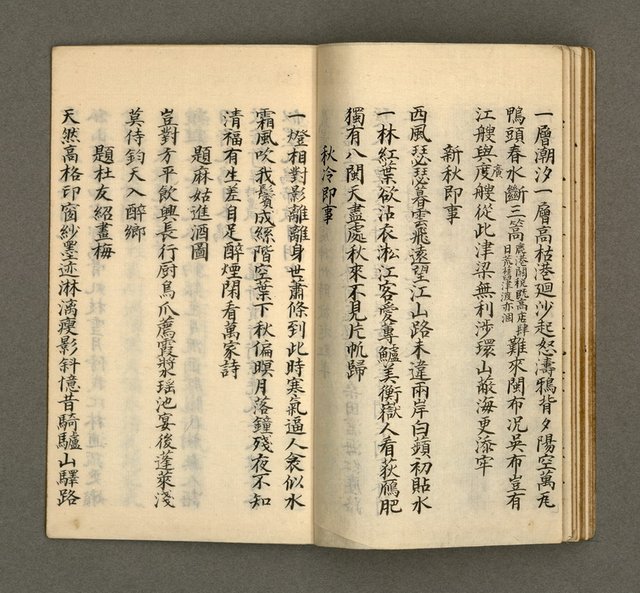 一層潮汐一層高枯港迴沙起怒濤鴉背夕陽空萬瓦
鴨頭春水斷三篙鹿港関税既高店肆日荒舊津波亦涸難來関布況吳布豈有
江艘與廣艘從此津梁無利涉環山敵海更添牢
新秋即事
西風瑟瑟暮雲飛遠望江山路未違兩岸白蘋初貼水
一林紅葉欲沾衣淞江客愛蓴鱸美衡獄人看荻鴈肥
獨有八関天盡處秋來不見片帆歸
秋冷即事
一燈相對影離離身世肅條到此時寒氣逼人衾似水
霜風吹我鬢成絲階空葉下秋偏暝月落鐘殘夜不知
清福有生差自足醉煙閑看萬家詩
題麻姑進酒圖
豈對方平飲興長行厨鳥爪薦霞將瑶池宴後蓬萊淺
莫侍鈞天入醉鄉
題杜友紹畫梅
天然高格印窗紗墨迹淋漓瘦影斜憶昔騎驢山驛路